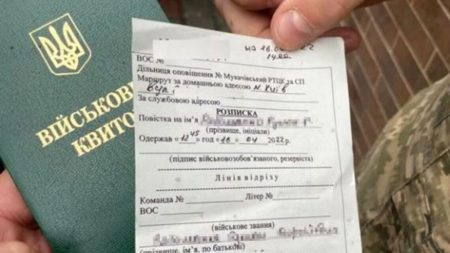 ВІЙСЬКОВ
КВИТО
на 16.0
1400
ВОС №
Дільниця оповіщення № Мукачівський РТЦК та СП
Маршрут за домашньою адресою м. Київ
За службовою адресою
РОЗПИСКА
Повістка на ім'я
(прізвище, ініціали)
Одержав «12 45» год «16» 04 2022 р.
(підпис військовозобов'язаного, резервіста)
Лінія відрізу
Команда № Літер №
ВОС
(військове звання)
(прізвище, ім'я, по батькові)